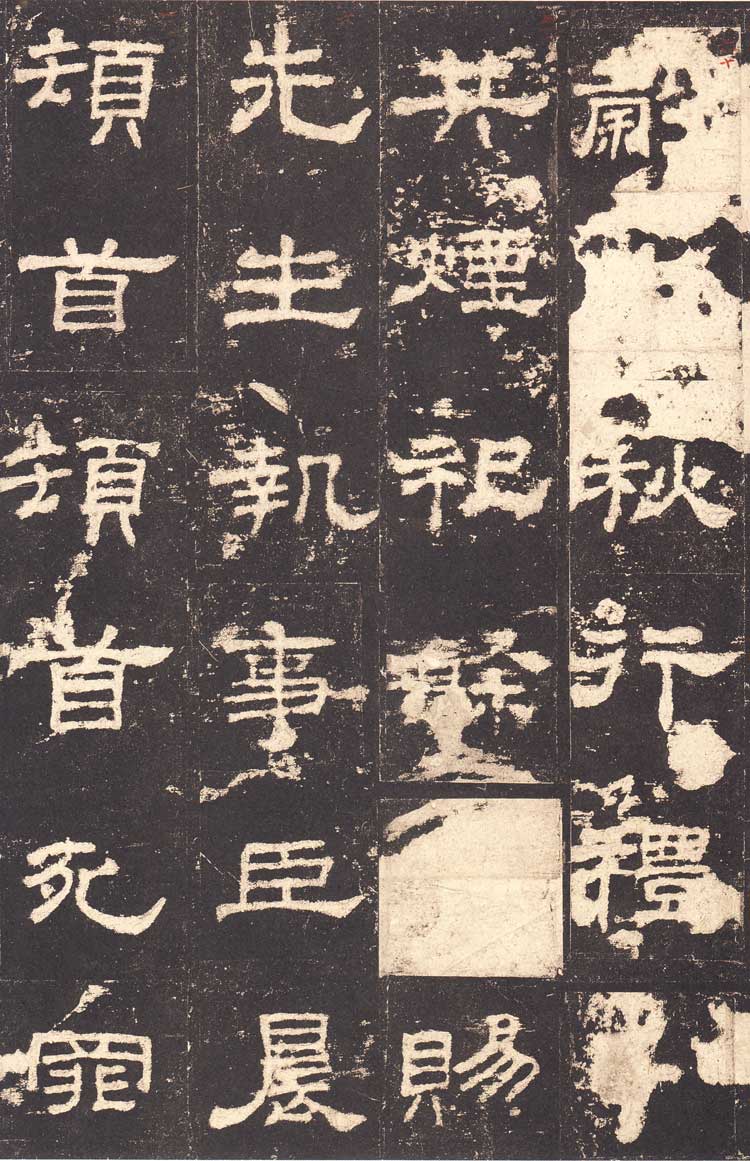 秋行禮
共煙祀餘賜
先生執事臣晨
頓首頓首死罪